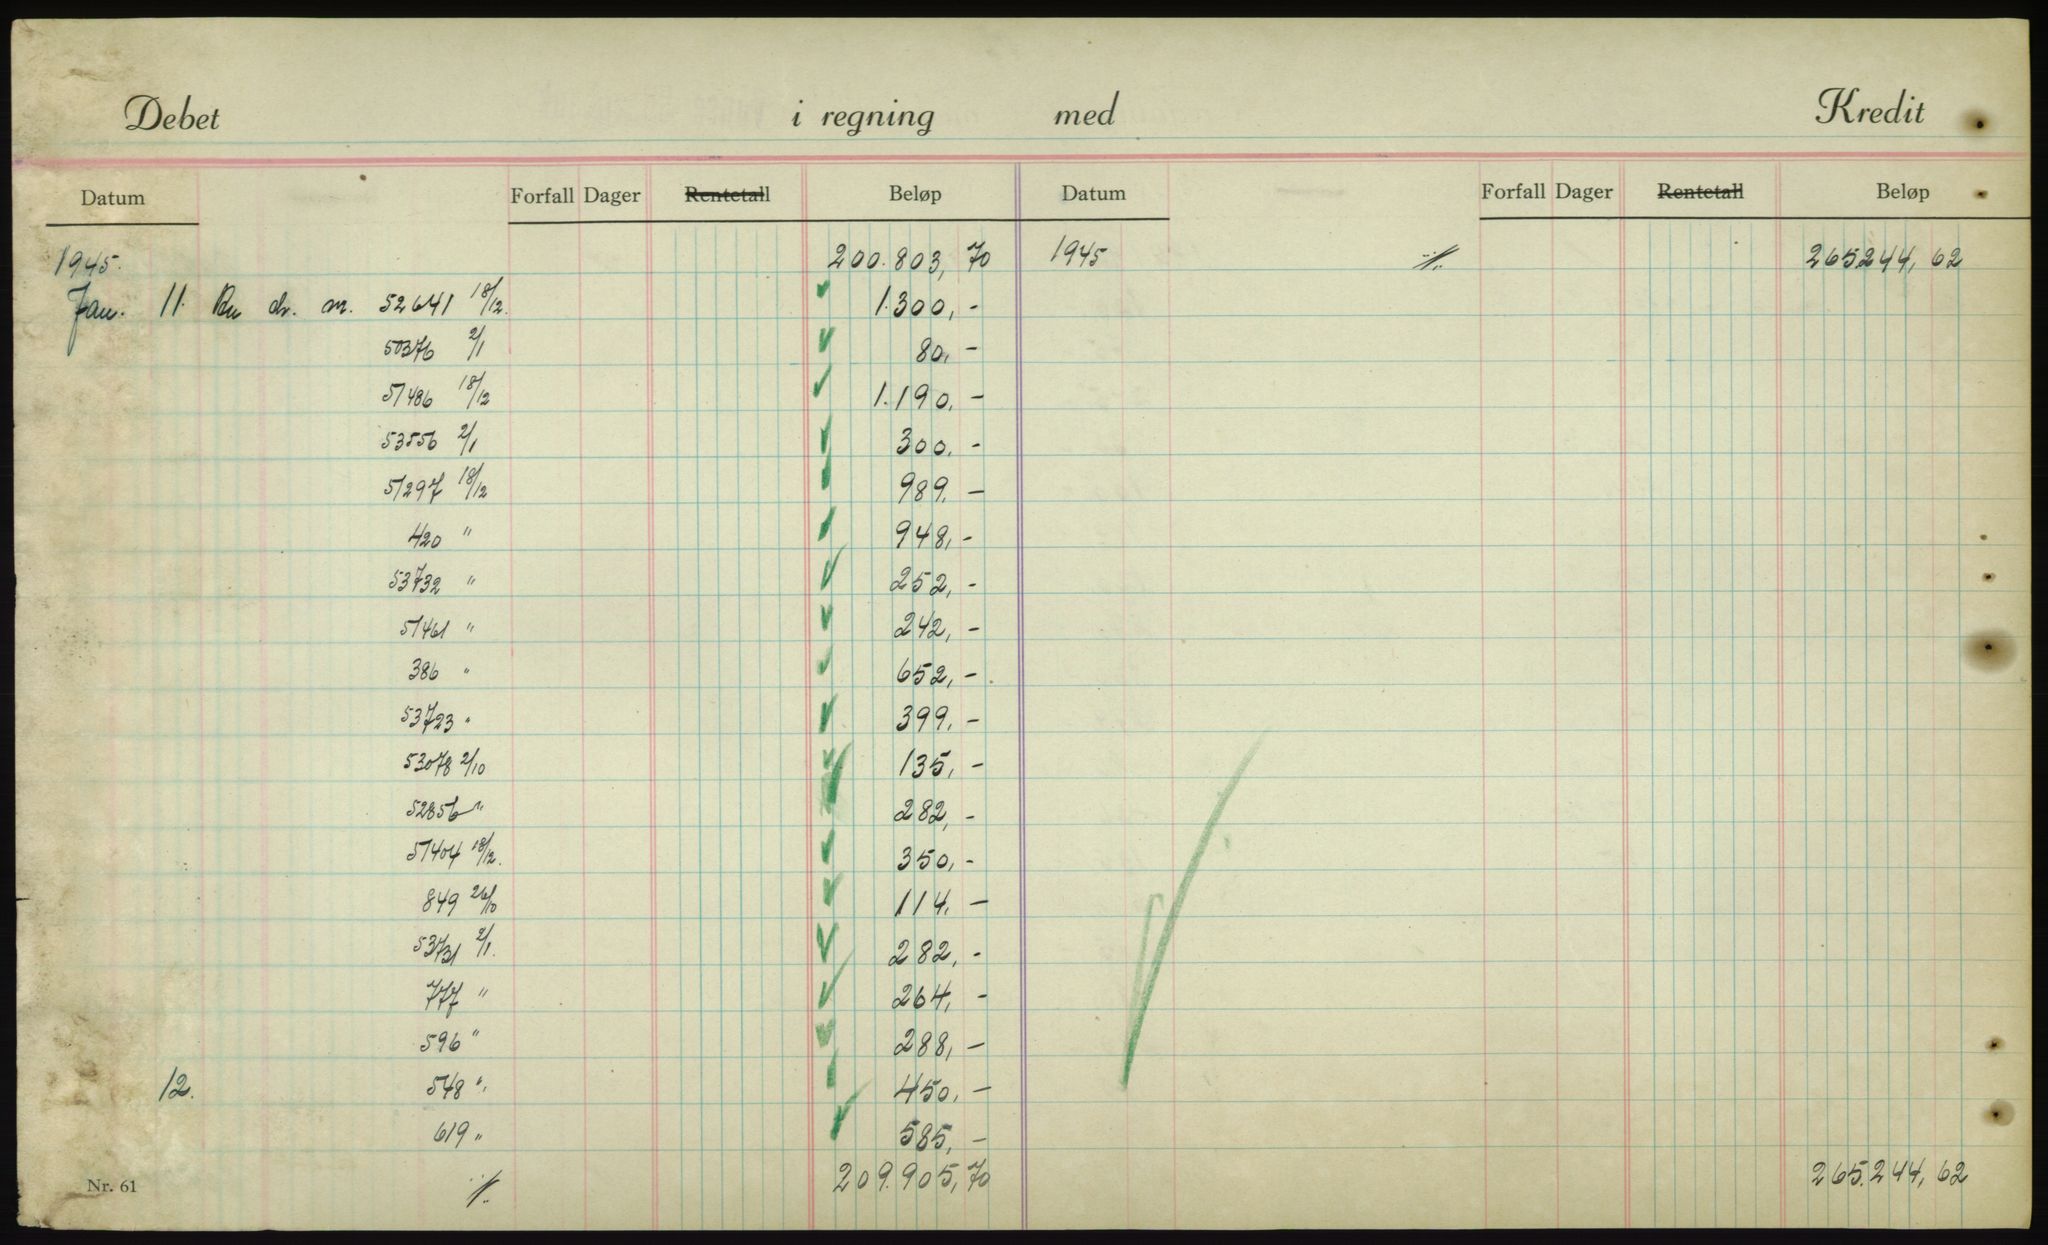 Debet i regning med Kredit
Datum Forfall Dager Rentetall Beløp Datum Forfall Dager Rentetall Beløp
1945. 200.803,70 1945 ·/. 265244,62
Jan. 11. dr. nr. 52641 18/12. 1.300,-
50376 2/1 80,-
51486 18/12 1.190,-
53556 2/1 300,-
51297 18/12 989,-
420 " 948,-
53732 " 252,-
51461 " 242,-
386 " 652,-
53723 " 399,-
53078 2/10 135,-
52856 " 282,-
51404 18/12. 350,-
849 26/10 114,-
53731 2/1. 282,-
777 " 264,-
596 " 288,-
12. 548 " 450,-
619 " 585,-
Nr. 61 ·/. 209.905,70 265.244,62